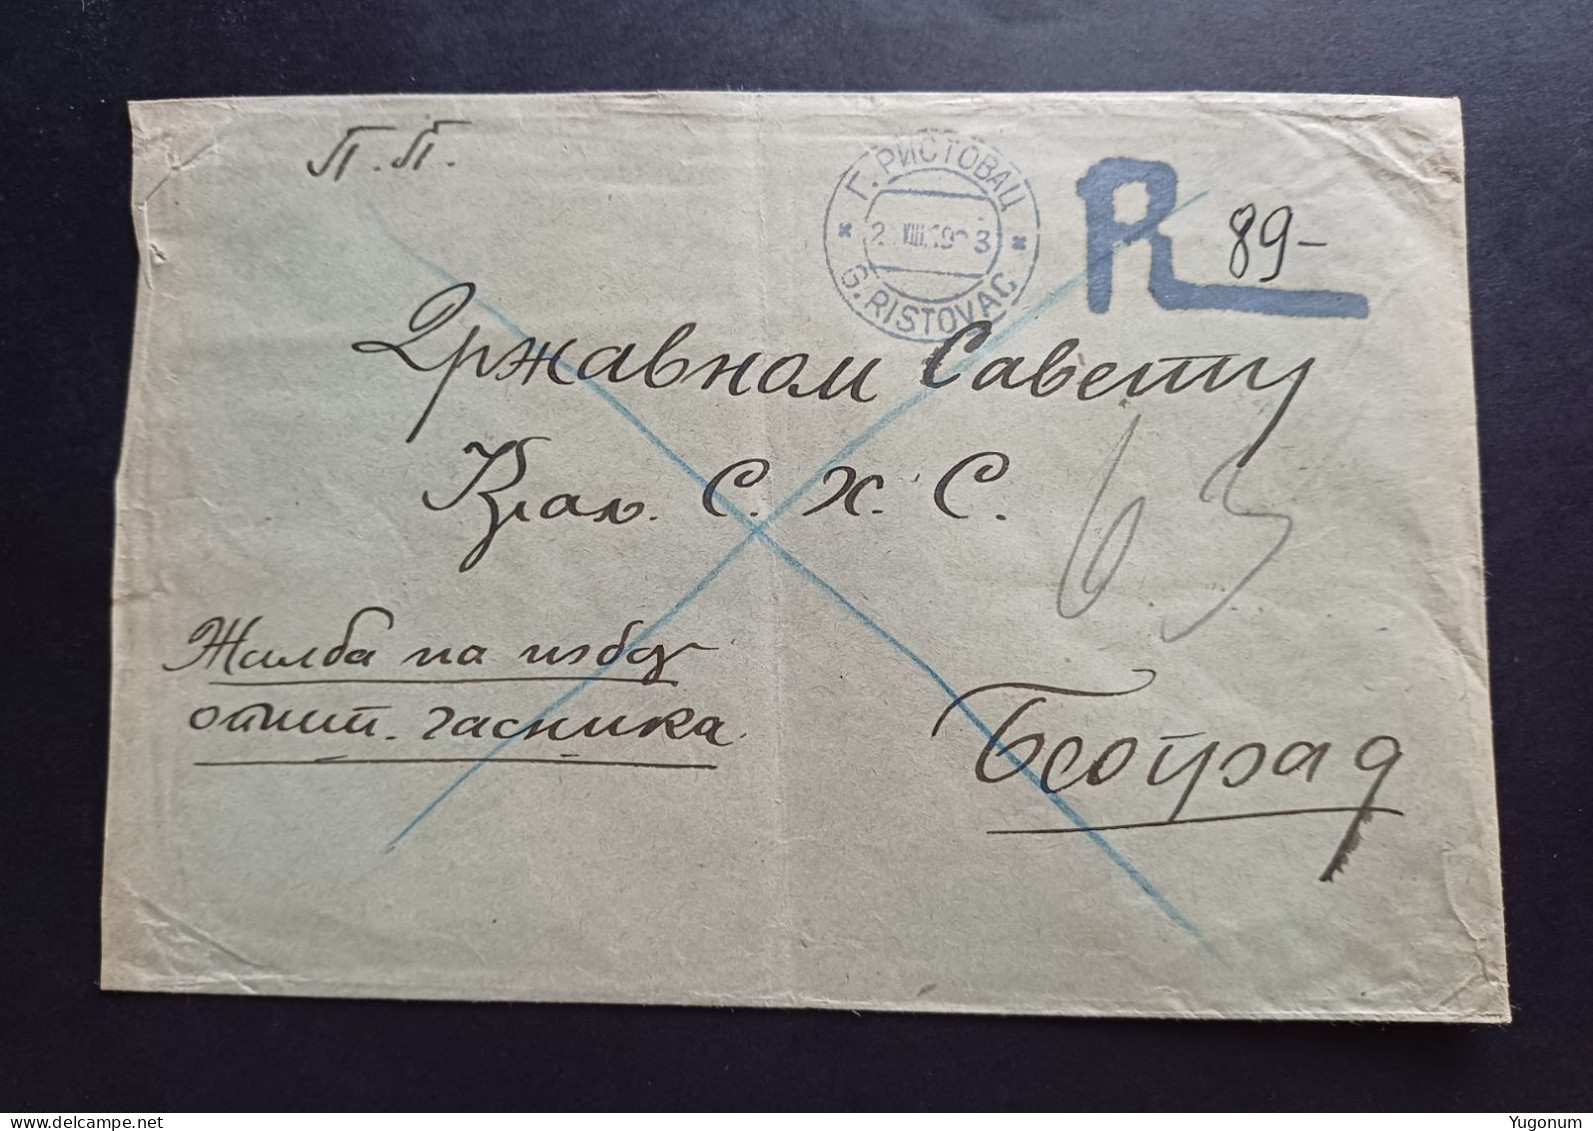 П. П.
Г. РИСТОВАЦ
VIII.19 3
G. RISTOVAC
R 89-
Државном Савету
Краљ. С. Х. С.
63
Жалба на избор
општ. часника
Београд
www.delcampe.net
Yugonum